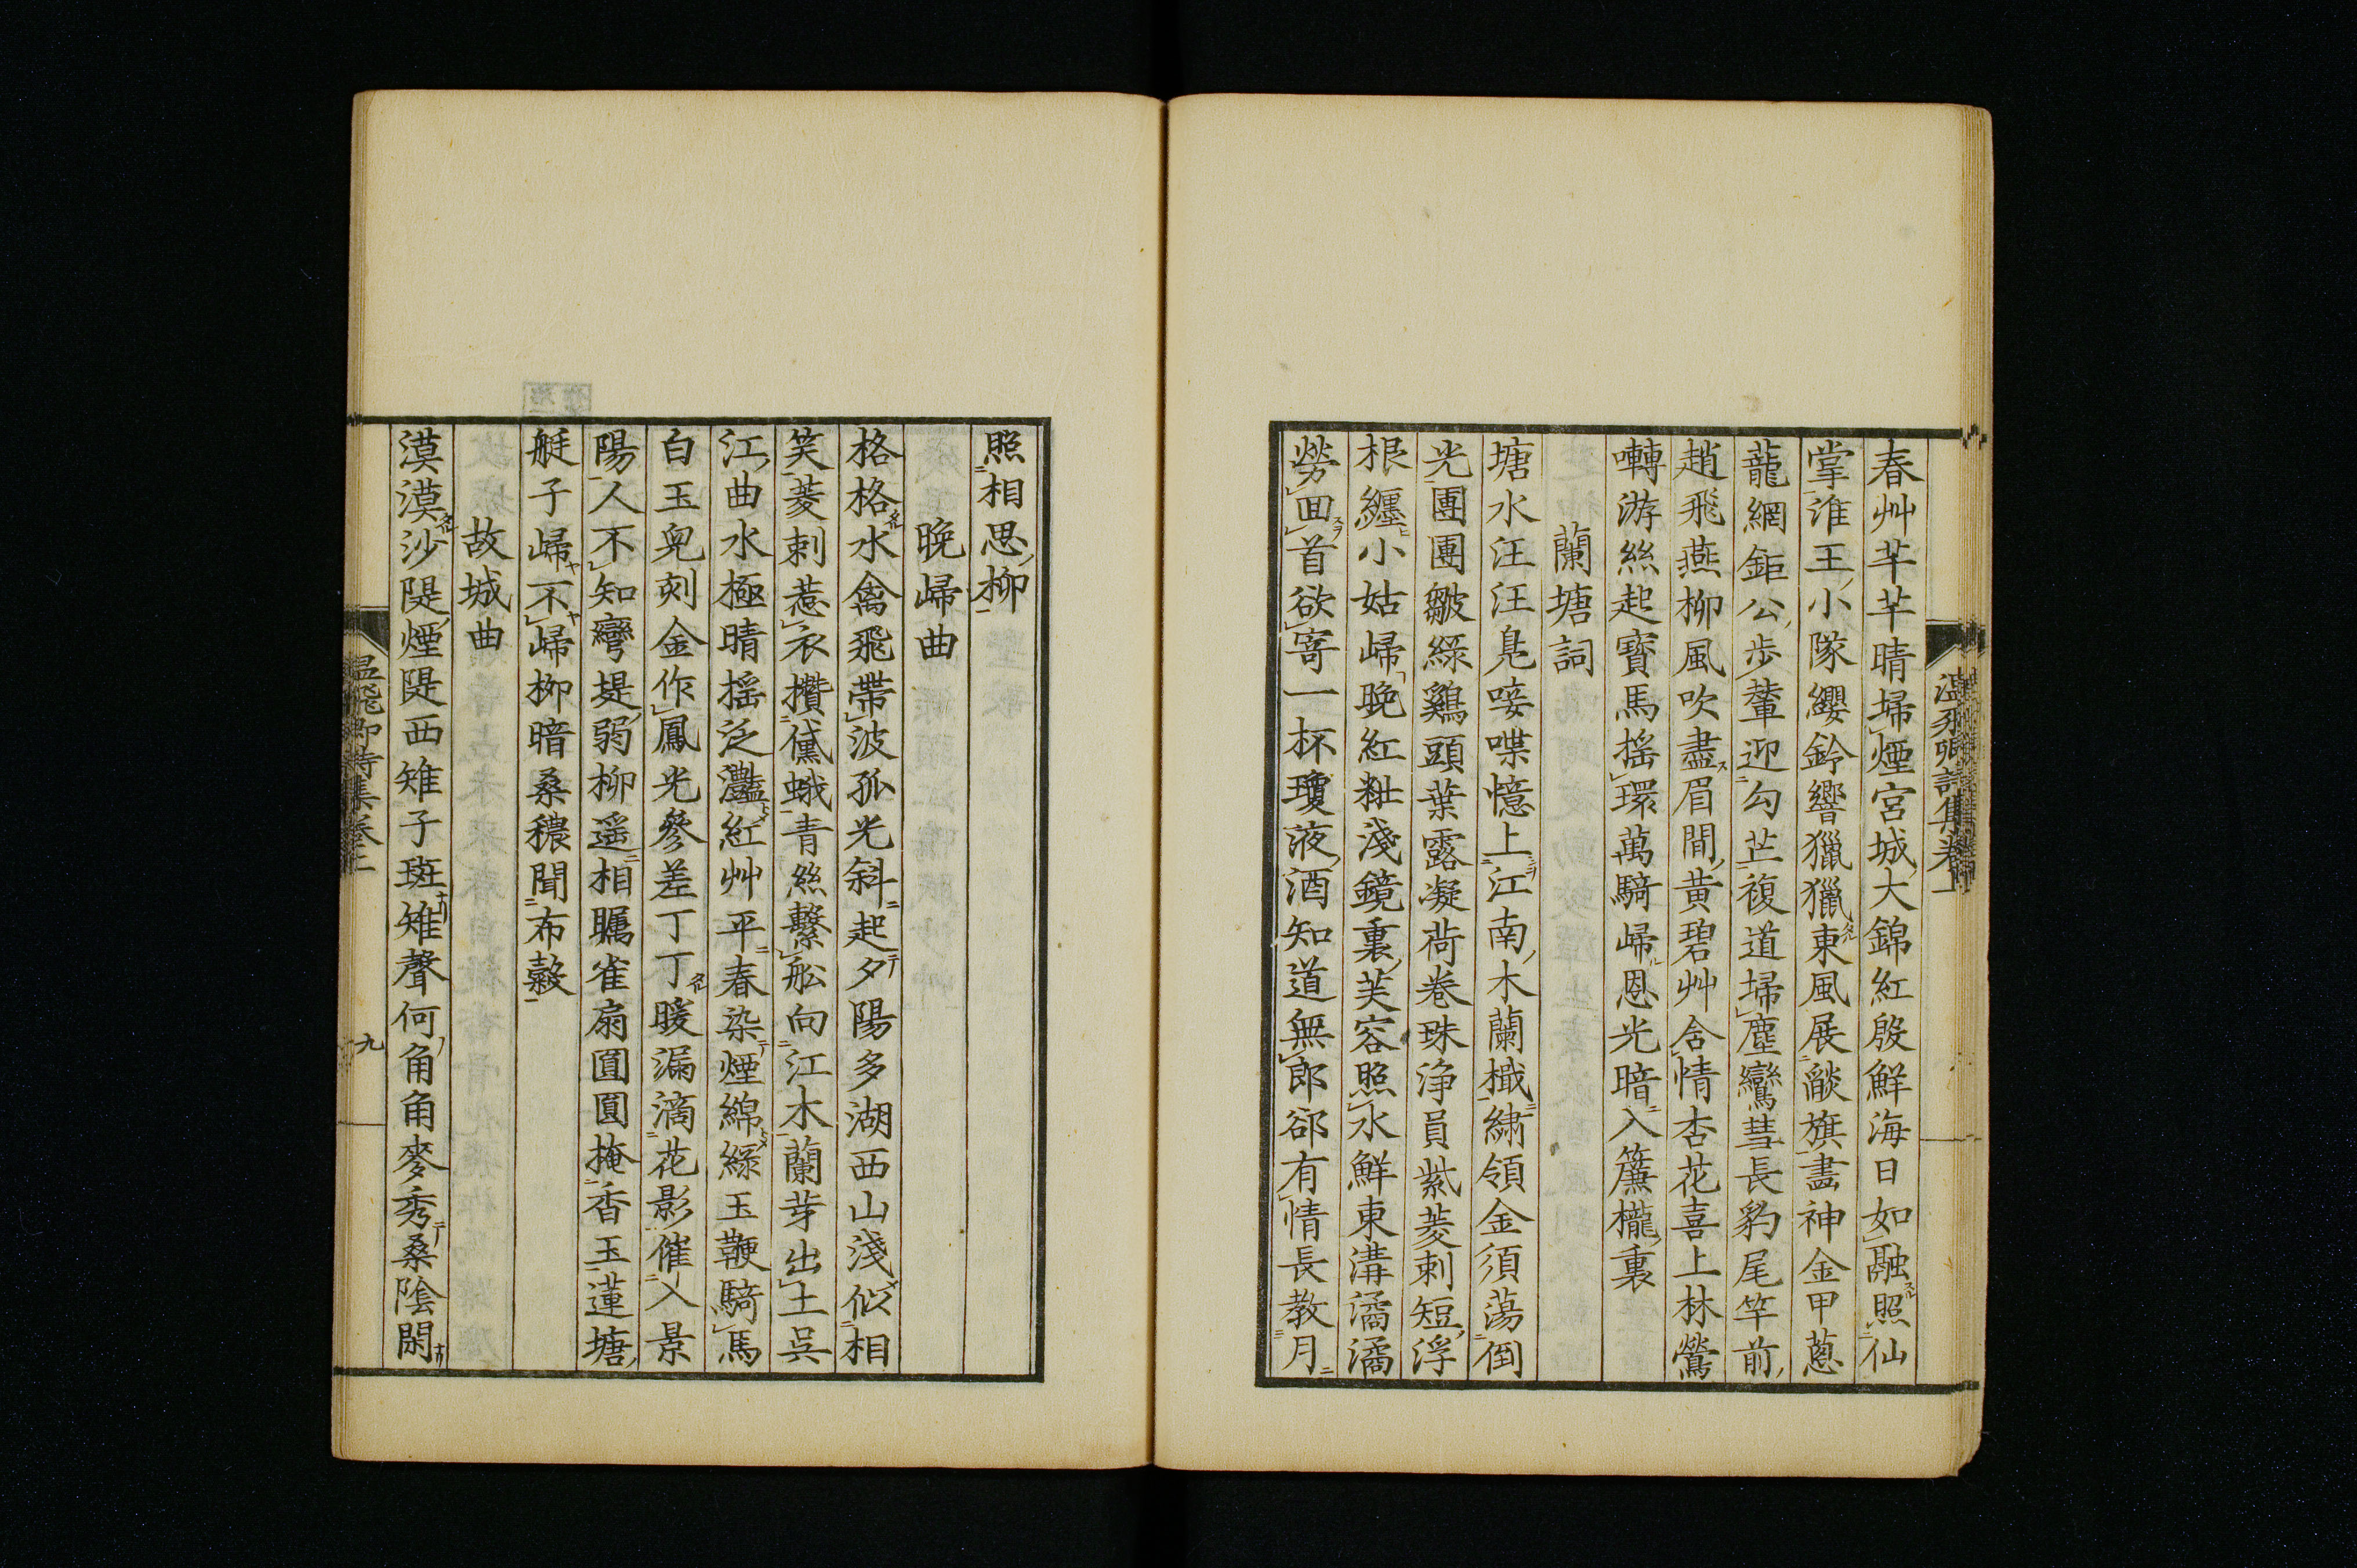 春艸芊芊晴埽煙宮城大錦紅殷鮮海日如融照仙
掌淮王小隊纓鈴響獵獵東風展燄旗畫神金甲蔥
龍網鉅公步輦迎勾芒複道埽塵鸞彗長豹尾竿前
趙飛燕柳風吹盡眉間黃碧艸含情杏花喜上林鶯
囀游絲起寶馬搖環萬騎歸恩光暗入簾櫳裏
蘭塘詞
塘水汪汪鳧唼喋憶上江南木蘭檝繡領金須蕩倒
光團團皺綠鷄頭葉露凝荷卷珠淨員紫菱刺短浮
根纏小姑歸晚紅粧淺鏡裏芙容照水鮮東溝潏潏
勞回首欲寄一杯瓊液酒知道無郎郤有情長教月
照相思柳
晩歸曲
格格水禽飛帶波孤光斜起夕陽多湖西山淺似相
笑菱刺惹衣攢黛蛾青絲繫舩向江木蘭芽出土吳
江曲水極晴搖泛灧紅艸平春染煙綿綠玉鞭騎馬
白玉皃刻金作鳳光參差丁丁暖漏滴花影催入景
陽人不知彎堤弱柳遥相矚雀扇圓圓掩香玉蓮塘
艇子歸不歸栁暗桑穠聞布穀
故城曲
漠漠沙隄煙隄西雉子斑雉聲何角角麥秀桑陰閑
溫飛卿詩集卷一
九